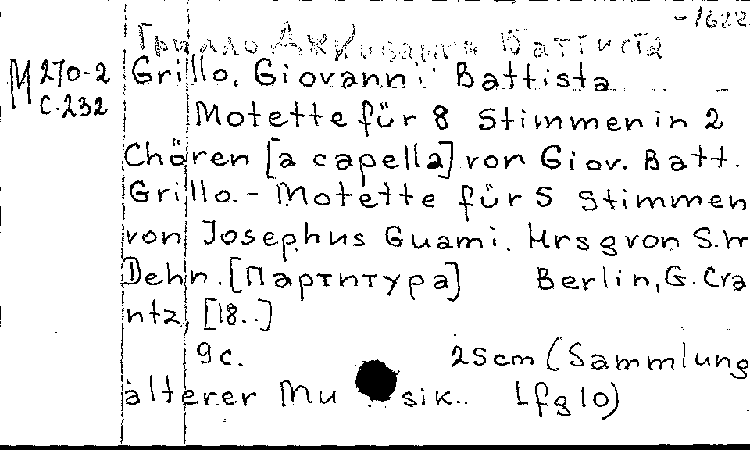 -1622
Грилло Джованни Баттиста
М 270-2
с.232
Grillo, Giovanni Battista
Motette für 8 Stimmen in 2
Chören [a capella] von Giov. Batt.
Grillo. - Motette für 5 Stimmen
von Josephus Guami. Hrsg von S.W
Dehn. [Партитура] Berlin, G. Cra
ntz, [18..]
9 с. 25cm (Sammlung
älterer Musik.. Lfg 10)